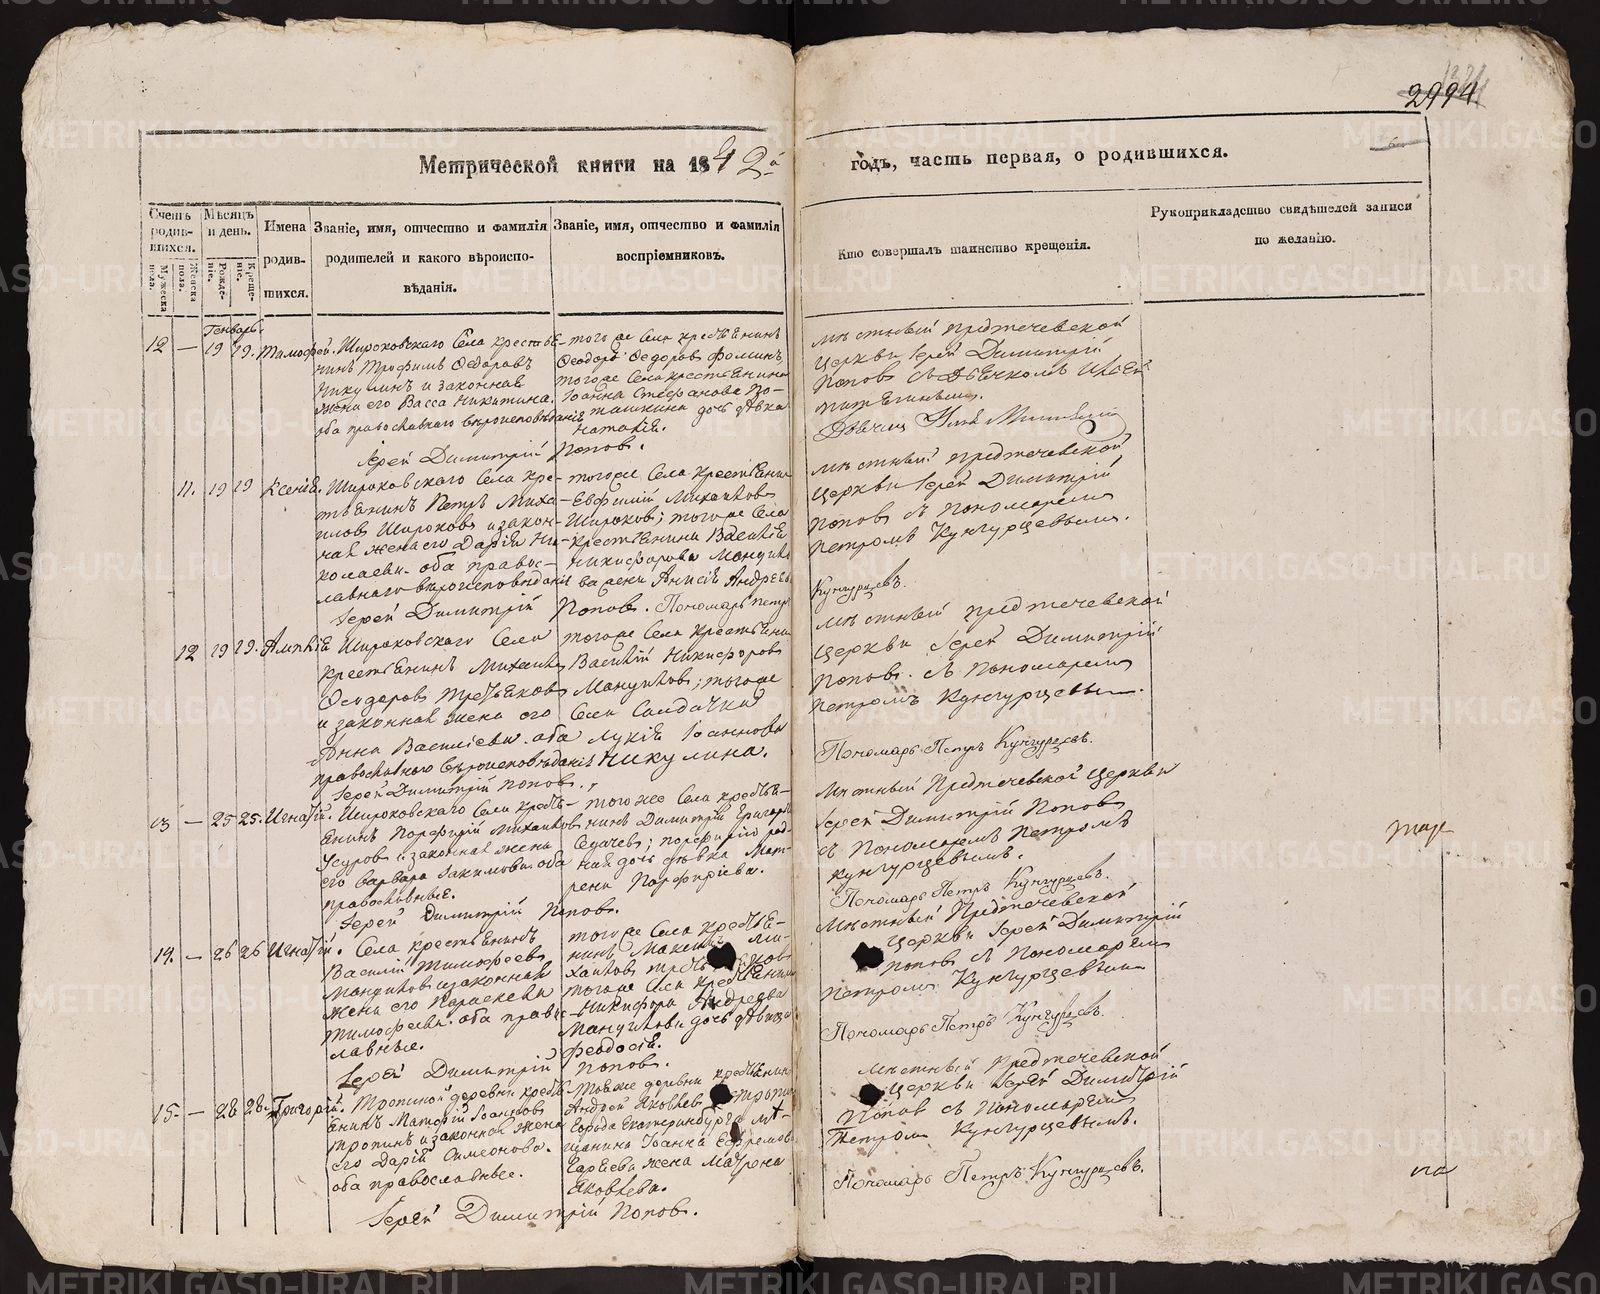 2994
Метрической книги на 1842й
годъ, часть первая, о родившихся.
Счетъ родившихся.
Мужеска пола.
Женска пола.
Мѣсяцъ и день.
Рожденіе.
Крещеніе.
Имена родившихся.
Званіе, имя, отчество и фамилія родителей и какого вѣроисповѣданія.
Званіе, имя, отчество и фамилія воспріемниковъ.
Кто совершалъ таинство крещенія.
Рукоприкладство свидѣтелей записи по желанію.
Генварь.
12 — 19 19. Тимофей.
Широковскаго Села крестья-
нинъ Трофимъ Ѳедоровъ
Никулинъ и законная
жена его Васса Никитина.
оба православнаго вѣроисповѣданія
того же Села крестьянинъ
Ѳеодоръ Ѳедоровъ Ѳоминъ
того же Села крестьянина
Іоанна Стефанова По-
ташкина дочь дѣвка
Наталія.
Іерей Димитрій Поповъ.
мѣстный Предтечевской
Церкви Іерей Димитрій
Поповъ съ Дьячкомъ
11. 19 19 Ксенія.
Широковскаго Села кре-
стьянинъ Петръ Миха-
иловъ Широковъ и закон-
ная жена его Дарія Ни-
колаева. оба право-
славнаго вѣроисповѣданія
того же Села крестьянинъ
Евфимій Михаиловъ
Широковъ; того же Села
крестьянина Василія
Никифорова Мангил
ва жена Анисія Андреева
Іерей Димитрій Поповъ. Пономарь Петръ
мѣстный Предтечевской
Церкви Іерей Димитрій
Поповъ съ пономаремъ
Петромъ Кунгурцевымъ.
Кунгурцевъ.
12 19 19.
Широковскаго Села
крестьянинъ Михаилъ
Ѳеодоровъ Третьяковъ
и законная жена его
Анна Василіева. оба
православнаго вѣроисповѣданія
того же Села крестьянинъ
Василій Никифоровъ
того же
Села Солдатка
Лукія Іоаннова
Никулина.
Іерей Димитрій Поповъ.
мѣстный Предтечевской
Церкви Іерей Димитрій
Поповъ. съ Пономаремъ
Петромъ Кунгурцевымъ.
Пономарь Петръ Кунгурцевъ.
13 — 25 25. Игнатій.
Широковскаго Села кресть-
янинъ Порфирій Михаиловъ
и законная жена
его Варвара Іакимова. оба
православные.
того же Села крестья-
нинъ Димитрій Григорьевъ
Порфирію род-
ная дочь дѣвка Мат-
рена Порфиріева.
Іерей Димитрій Поповъ.
Мѣстный Предтечевской Церкви
Іерей Димитрій Поповъ
съ Пономаремъ Петромъ
Кунгурцевымъ.
Пономарь Петръ Кунгурцевъ.
14. — 26 26 Игнатій.
Села крестьянинъ
Василій Тимофеевъ
и законная
жена его Параскева
Тимофеева. оба право-
славные.
того же Села крестья-
нинъ Ми-
хаиловъ
того же Села крестьянина
Никифора Андреева
дочь дѣвица
Ѳеодосія.
Іерей Димитрій Поповъ.
Мѣстный Предтечевской
Церкви Іерей Димитрій
Поповъ съ Пономаремъ
Петромъ Кунгурцевымъ
Пономарь Петръ Кунгурцевъ.
15. — 28 28. Григорій.
Тропиной деревни кресть-
янинъ Матфій Іоанновъ
Тропинъ и законная жена
его Дарія Симеонова.
оба православные.
Тояже деревни крестьянинъ
Андрей Яковлевъ
Города Екатеринбурга мѣ-
щанина Іоанна Ефремова
жена Матрона
Яковлева.
Іерей Димитрій Поповъ.
мѣстный Предтечевской
Церкви Іерей Димитрій
Поповъ съ Пономаремъ
Петромъ Кунгурцевымъ.
Пономарь Петръ Кунгурцевъ.
METRIKI.GASO-URAL.RU